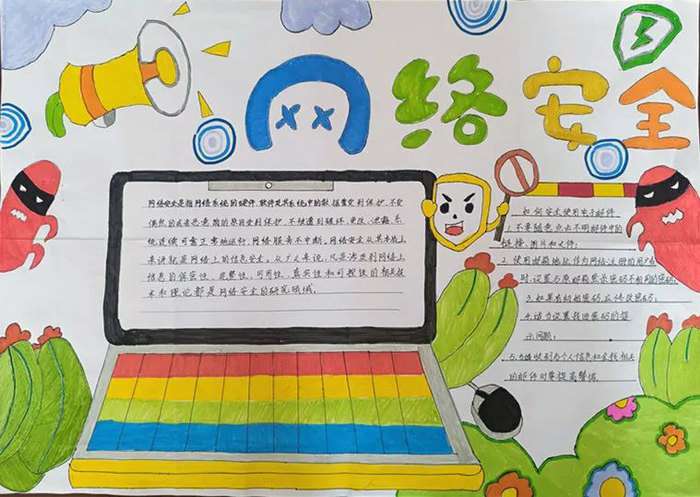 网络安全
网络安全是指网络系统的硬件、软件及其系统中的数据受到保护,不受
偶然的或者恶意的原因受到保护,不被遭到破坏、更改、泄露,系
统连续可靠正常地运行,网络服务不中断。网络安全从其本质上
来讲就是网络上的信息安全。从广义来说,凡是涉及到网络上
信息的保密性、完整性、可用性、真实性和可控性的相关技
术和理论都是网络安全的研究领域。
如何安全使用电子邮件
1.不要随意点击不明邮件中的
链接、图片和文件;
2.使用邮箱地址作为网站注册的用户名
时,设置与原邮箱登录密码不相同的密码;
3.如果有初始密码,应修改密码;
4.适当设置找回密码的提
示问题;
5.当收到与个人信息和金钱相关
的邮件时要提高警惕